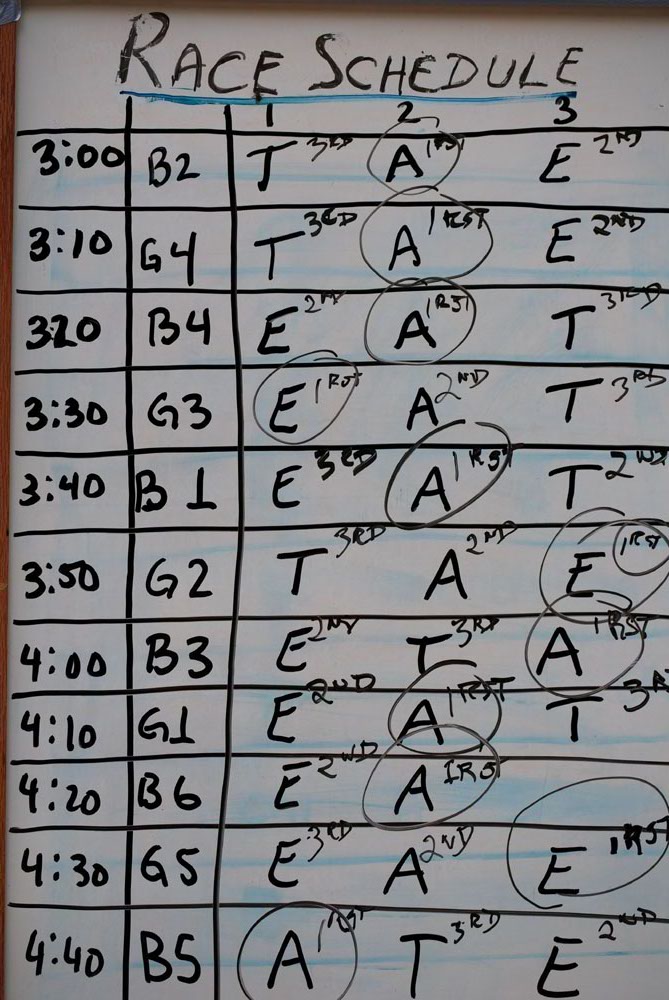 RACE SCHEDULE
1 2 3
3:00 B2 T 3RD A 1RST E 2ND
3:10 G4 T 3RD A 1RST E 2ND
3:20 B4 E 2ND A 1RST T 3RD
3:30 G3 E 1RST A 2ND T 3RD
3:40 B1 E 3RD A 1RST T 2ND
3:50 G2 T 3RD A 2ND E 1RST
4:00 B3 E 2ND T 3RD A 1RST
4:10 G1 E 2ND A 1RST T 3R
4:20 B6 E 2ND A 1RST
4:30 G5 E 3RD A 2ND E 1RST
4:40 B5 A 1RST T 3RD E 2ND